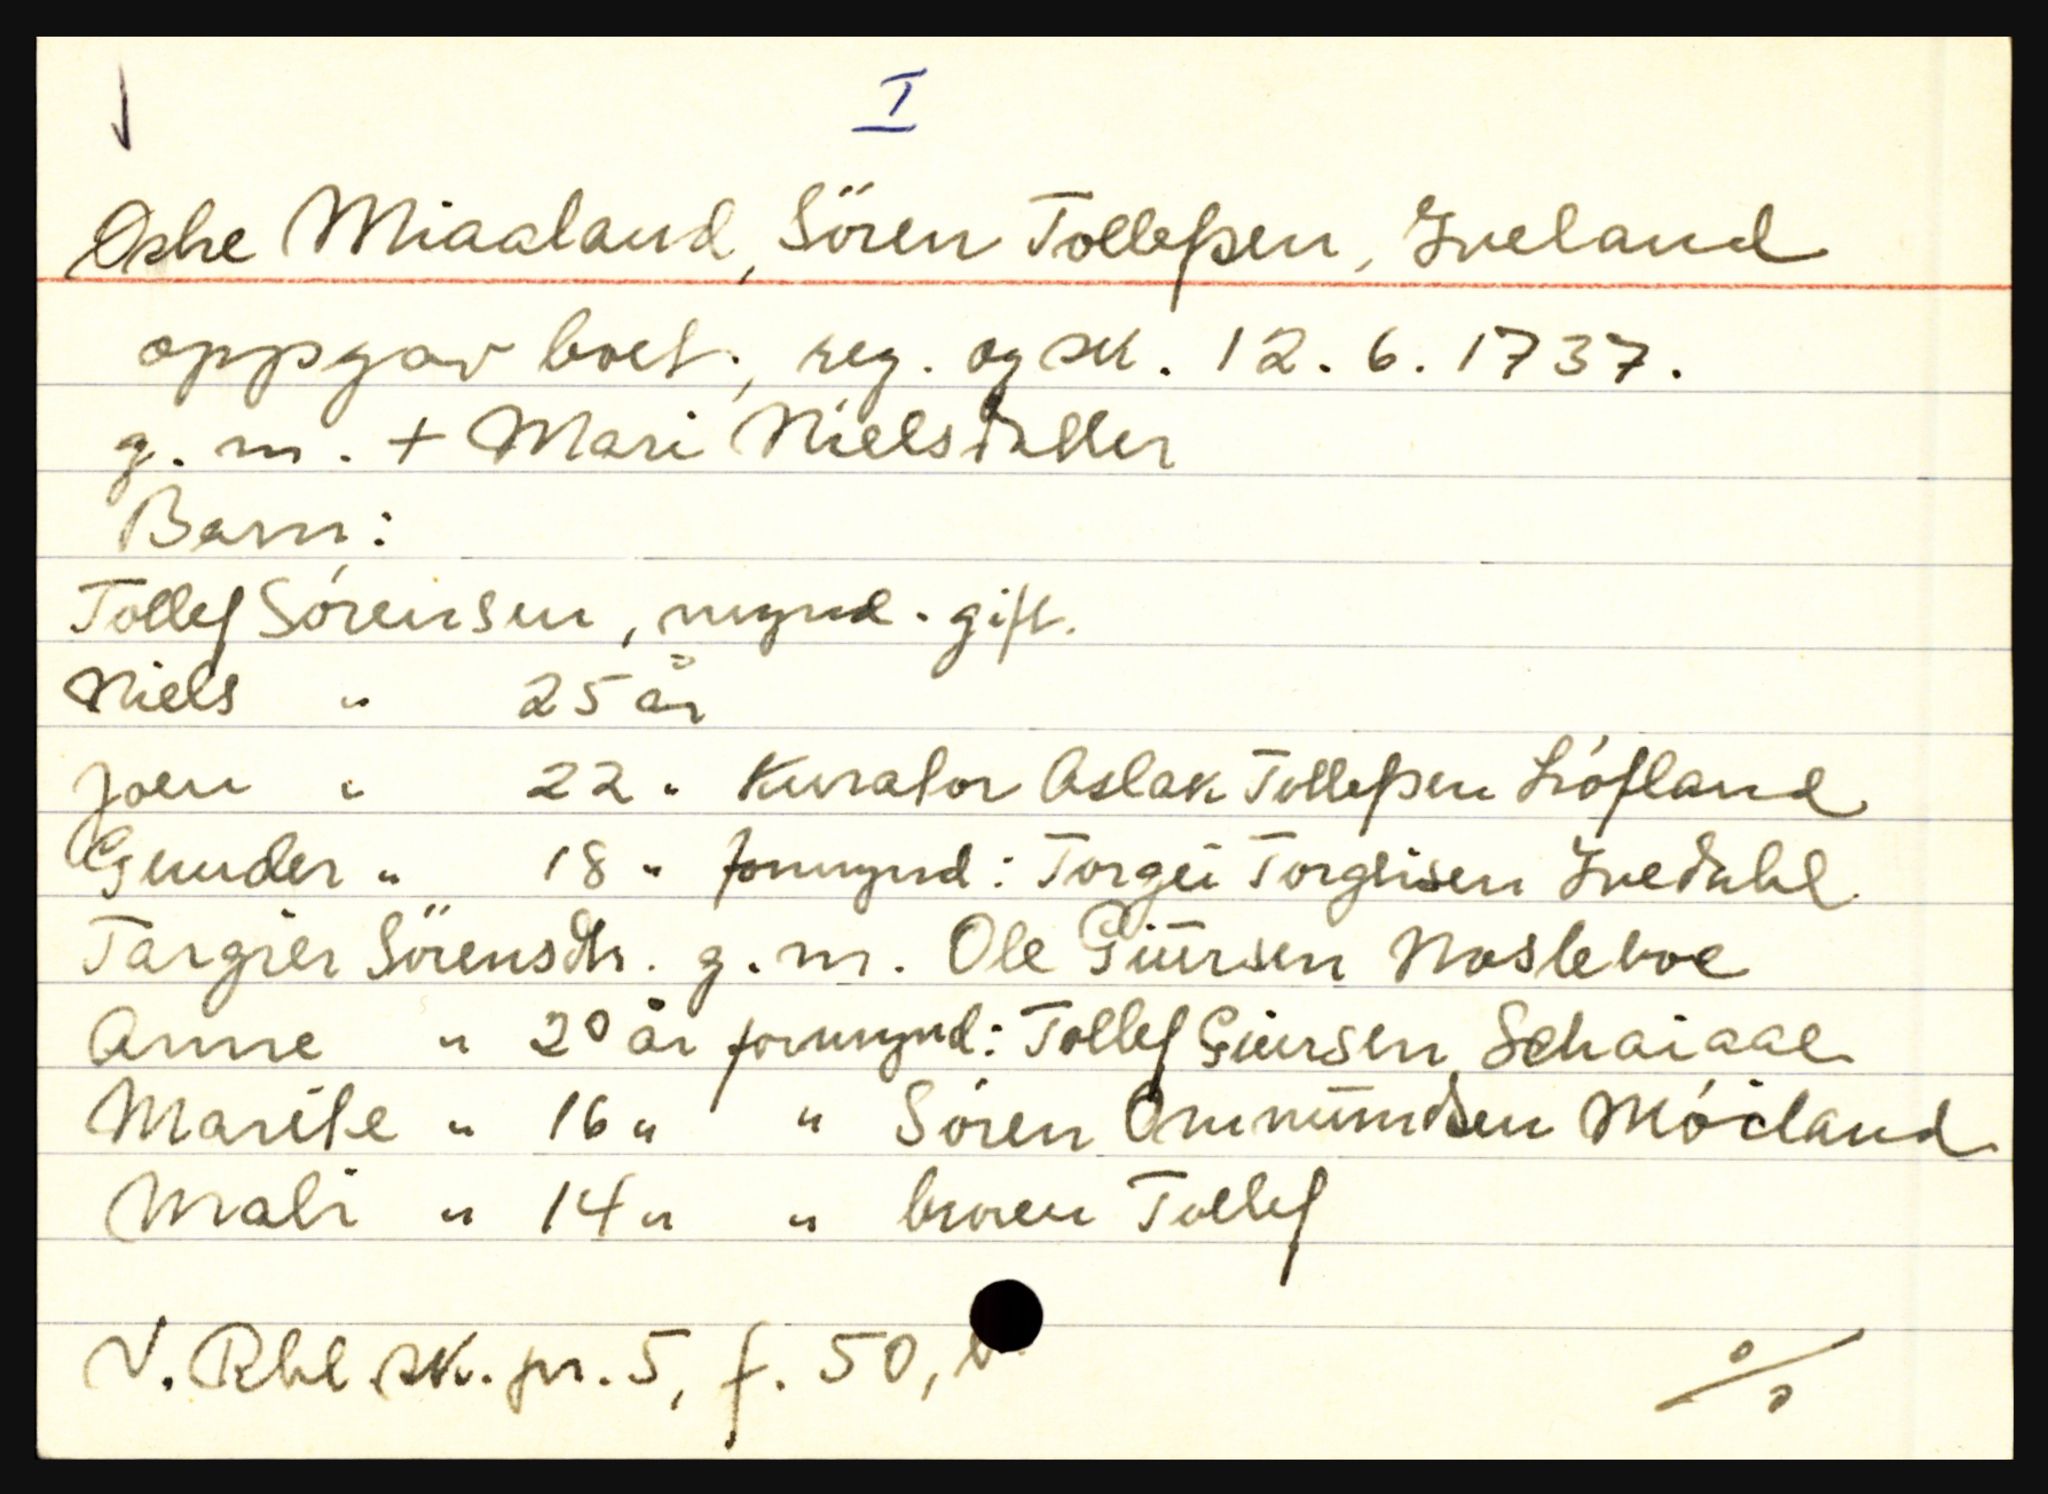 I
Oske Miaaland, Sören Tolleßen, Iveland
oppgav boet, reg. og sk. 12.6.1737.
g. m. + Mari Nielsdatter
Barn:
Tollef Sörensen, mynd. gift.
Niels " 25 år
Joen " 22 " Kurator Aslak Tolleßen Liófland
Gunder " 18 " formynd: Torgei Torgeisen Ivedahl
Targier Sörensdtr. g. m. Ole Giursen Nosleboe
Anne " 20 år formynd: Tollef Giursen Schaiaae
Marite " 16 " " Sören Ommundsen Móiland
Mali " 14 " " broren Tollef
V. Rbl. sk. pr. 5, f. 50, b
%